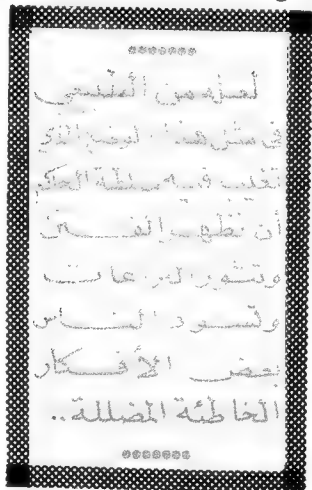 لعله من الطبيعي
في مثل هذا الوضع الذي
تغيب فيه سلطة الحكم
أن تظهر الفتن
وتثور النزعات
وتسود الناس
بعض الأفكار
الخاطئة المضللة..